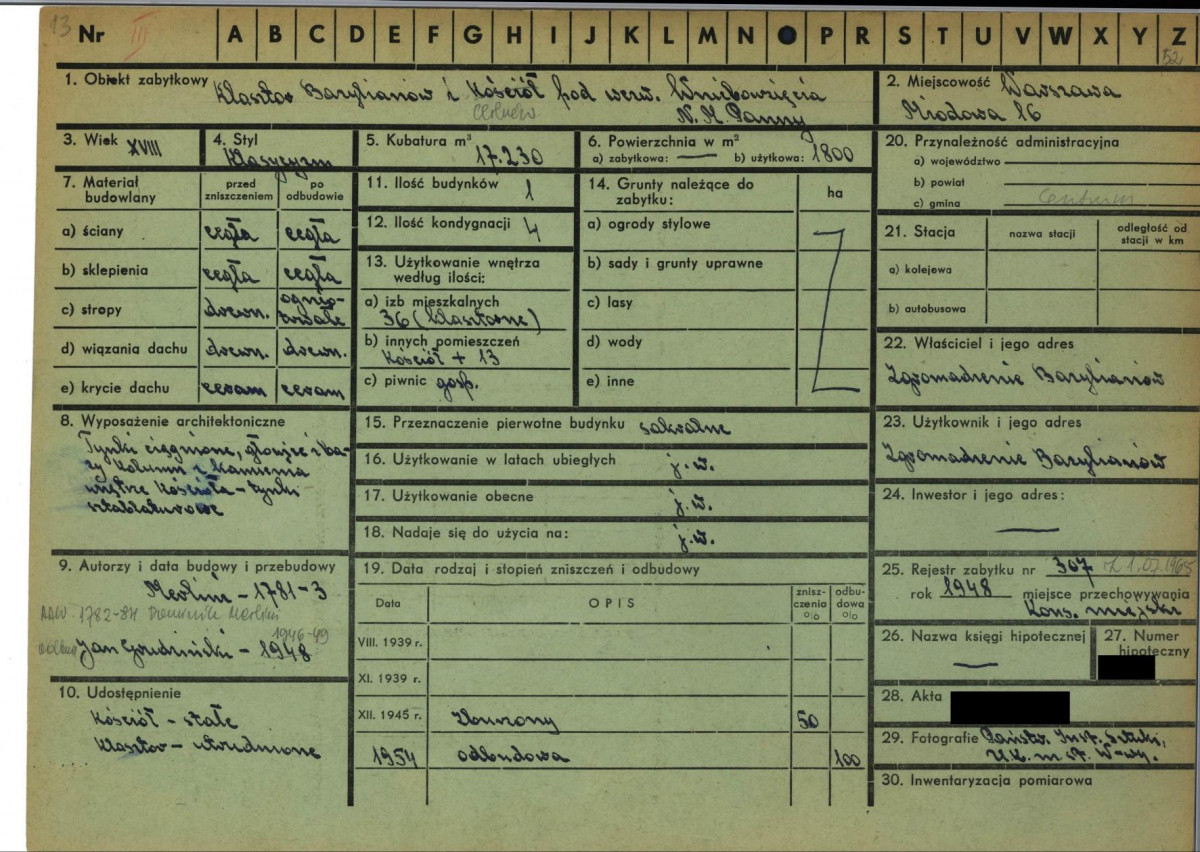 13 Nr III A B C D E F G H I J K L M N O P R S T U V W X Y Z
52
1. Obiekt zabytkowy Klasztor Bazylianów i Kościół pod wezw. Wniebowzięcia
N. M. Panny
2. Miejscowość Warszawa
Miodowa 16
3. Wiek XVIII
4. Styl Klasycyzm
5. Kubatura m³ 17.230
6. Powierzchnia w m²
a) zabytkowa: — b) użytkowa: 1800
7. Materiał budowlany
przed zniszczeniem
po odbudowie
a) ściany cegła cegła
b) sklepienia cegła cegła
c) stropy drewn. ognio-
trwałe
d) wiązania dachu drewn. drewn.
e) krycie dachu ceram ceram
8. Wyposażenie architektoniczne
Tynki ciągnione, głowice i ba-
zy kolumn z kamienia
wnętrze kościoła - tynki
sztablaturowe
9. Autorzy i data budowy i przebudowy
Merlini - 1781-3
1782-84 Dominik Merlini
1946-49
Jan Grudziński - 1948
10. Udostępnienie
Kościół - stałe
Klasztor - utrudnione
11. Ilość budynków 1
12. Ilość kondygnacji 4
13. Użytkowanie wnętrza
według ilości:
a) izb mieszkalnych
36 (klasztorne)
b) innych pomieszczeń
Kościół + 13
c) piwnic gosp.
14. Grunty należące do
zabytku:
ha
a) ogrody stylowe
b) sady i grunty uprawne
c) lasy
d) wody
e) inne
15. Przeznaczenie pierwotne budynku sakralne
16. Użytkowanie w latach ubiegłych j.w.
17. Użytkowanie obecne j.w.
18. Nadaje się do użycia na: j.w.
19. Data rodzaj i stopień zniszczeń i odbudowy
Data OPIS znisz-
czenia
%
odbu-
dowa
%
VIII. 1939 r.
XI. 1939 r.
XII. 1945 r. Zburzony 50
1954 odbudowa 100
20. Przynależność administracyjna
a) województwo
b) powiat
c) gmina Centrum
21. Stacja
nazwa stacji
odległość od
stacji w km
a) kolejowa
b) autobusowa
22. Właściciel i jego adres
Zgromadzenie Bazylianów
23. Użytkownik i jego adres
Zgromadzenie Bazylianów
24. Inwestor i jego adres: —
25. Rejestr zabytku nr 307 z 1.07.1965
rok 1948 miejsce przechowywania
Kons. miejski
26. Nazwa księgi hipotecznej —
27. Numer
hipoteczny
28. Akta
29. Fotografie Państw. Inst. Sztuki,
U.K. m. st. W-wy.
30. Inwentaryzacja pomiarowa